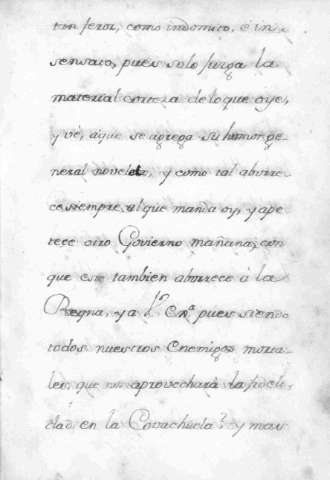 tan feroz, como indomito, é in-
sensato, pues solo juzga la
material corteza de lo que oye,
y vé, aque se agrega su humor ge-
neral novelero, y como tal aborre-
ce siempre al que manda oy, y ape-
tece otro Govierno mañana; con
que este tambien aborrece à la
Reyna, y a V.ª Enª. pues siendo
todos nuestros Enemigos morta-
les, que nos aprovechará la fideli-
dad en la Covachuela? y mas